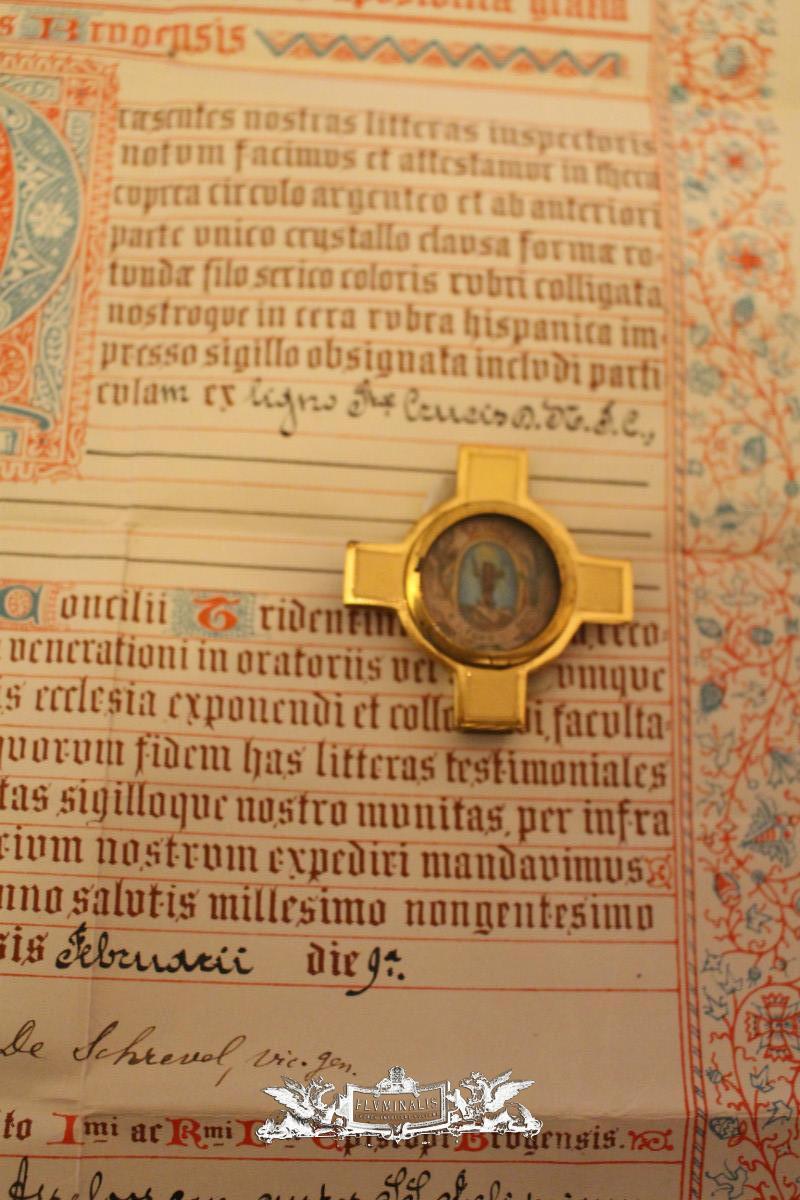 apostolica gratia
s Brugensis
Præsentes nostras litteras inspecturis
notum facimus et attestamur in theca
cuprea circulo argenteo et ab anteriori
parte unico crystallo clausa formæ ro-
tundæ filo serico coloris rubri colligata
nostroque in cera rubra hispanica im-
presso sigillo obsignata includi parti
culam ex ligno Stæ Crucis D.N.J.C.,
Concilii Tridentini
venerationi in oratoriis vel umque
is ecclesia exponendi et collo di, faculta-
quorum fidem has litteras testimoniales
tas sigilloque nostro munitas, per infra
rium nostrum expediri mandavimus
nno salutis millesimo nongentesimo
sis Februarii die 9a.
De Schrevel, vic. gen.
to Imi ac Rmi Episcopi Brugensis.
FLVMINALIS